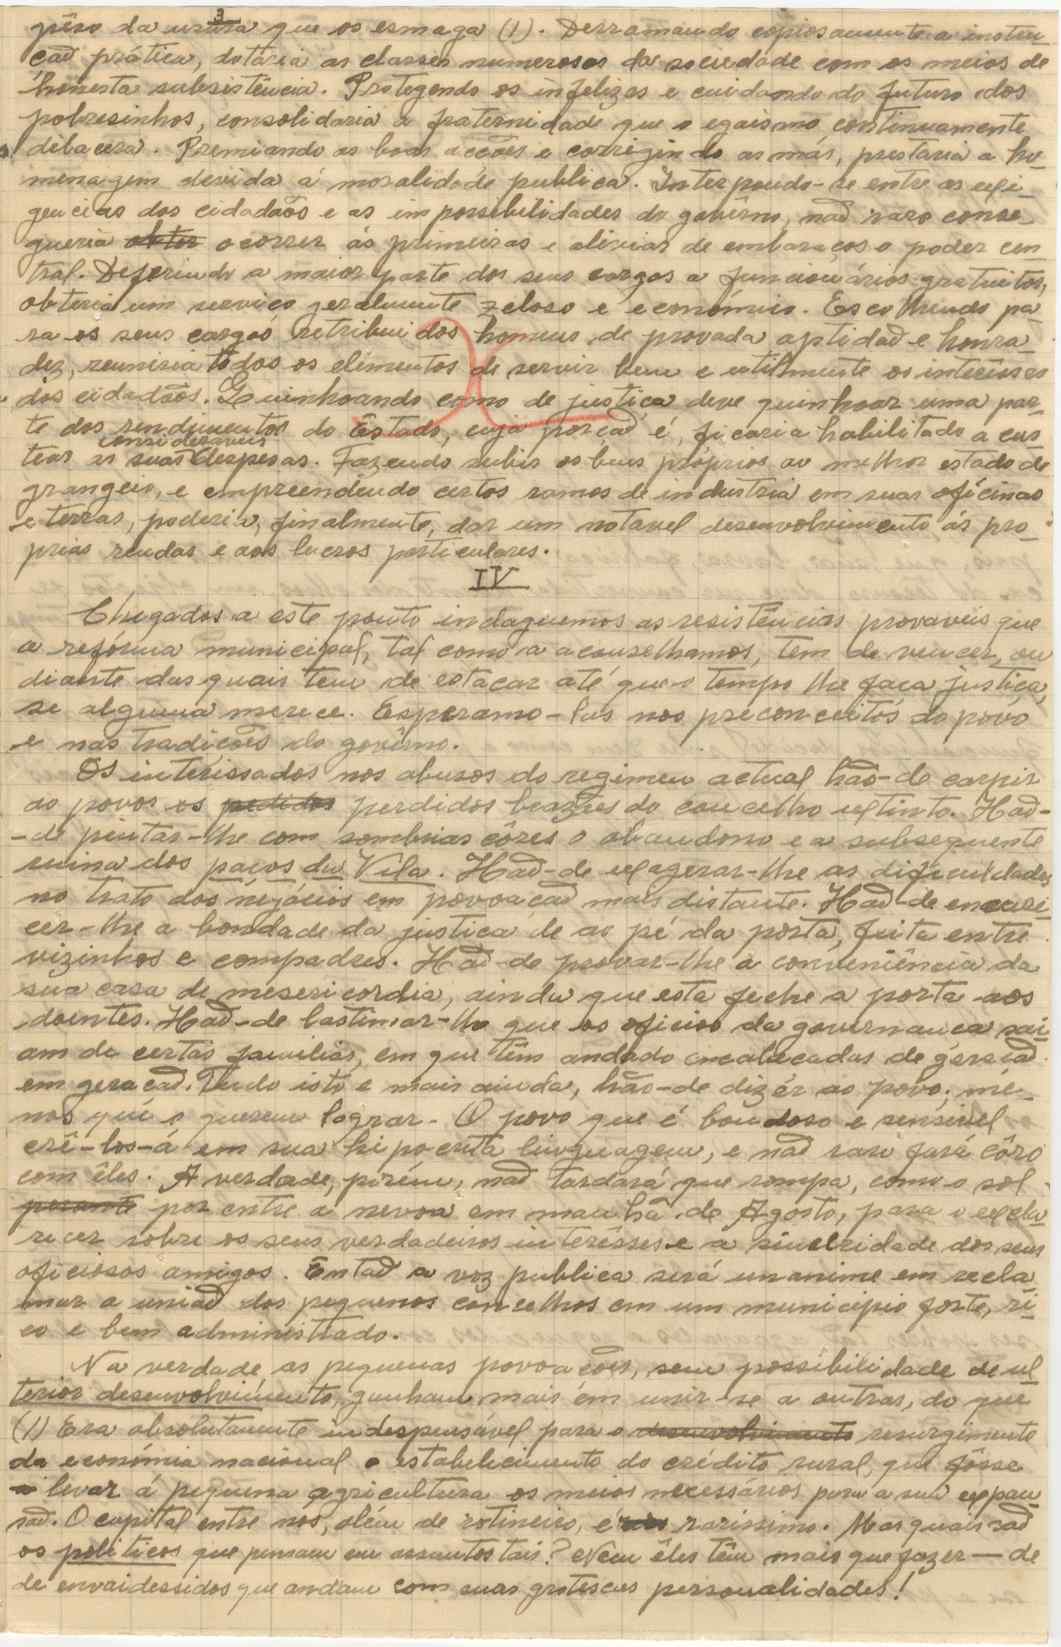 3
pêso da usura que os esmaga (1). Derramando copiosamente a instru-
ção prática, dotária as classes numerosas da sociedade com os meios de
honesta subsistência. Protegendo os infelizes e cuidando do futuro dos
pobresinhos, consolidaria a fraternidade que o egaismo continuamente
dilacera. Premiando as boas acções e corregindo as más, prestaria a ho-
menagem devida á moralidade publica. Interpondo-se entre as exi-
gencias dos cidadãos e as impossibilidades do govêrno, não raro conse-
gueria obter ocorrer ás primeiras e aliviar de embaraços o poder cen
tral. Deferindo a maior parte dos seus cargos a funcionários gratuitos,
obteria um serviço geralmente zeloso e económico. Escolhendo pa
ra os seus cargos retribuidos homens de provada aptidão e honra-
dez, reuniria todos os elementos de servir bem e utilmente os interesses
dos cidadãos. Quinhoando como de justiça deve quinhoar uma par-
te dos rendimentos do Estado, cuja porção é, ficaria habilitado a cus-
consideraveis
tear as suas despesas. Fazendo subir os bens próprios ao melhor estado de
grangeio, e empreendendo certos ramos de industria em suas oficinas
e terras, poderia, finalmente, dar um notavel desenvolvimento ás pro-
prias rendas e aos lucros particulares.
IV
Chegados a este ponto indaguemos as resistências provaveis que
a refórma municipal, tal como a aconselhamos, tem de vencer, ou
diante das quais tem de estacar até que o tempo lhe faça justiça,
se alguma merece. Esperamo-las nos preconceitos do povo
e nas tradições do govêrno.
Os interessados nos abusos do regimen actual hão-de carpir
ao povos os pedidos perdidos brazões do concelho extinto. Hão-
-de pintar-lhe com sombrias côres o abandono e a subsequente
ruina dos paços da Vila. Hão-de exagerar-lhe as dificuldades
no trato dos negócios em povoação mais distante. Hão-de encare-
cer-lhe a bondade da justiça de ao pé da porta, feita entre
vizinhos e compadres. Hão-de provar-lhe a conveniência da
sua casa de mesericordia, ainda que esta feche a porta aos
doentes. Hão-de lastimar-lhe que os oficios da governança sai-
am de certas familias, em que têm andado encabeçadas de geração
em geração. Tudo isto e mais ainda, hão-de dizêr ao povo, mé-
nos que o querem lograr. O povo que é bondoso e sensivel
crê-los-á em sua hipocrita linguagem, e não raro fará côro
com êles. A verdade, porém, não tardará que rompa, como o sol
perante por entre a nevoa em manhã de Agosto, para o esclu
recer sobre os seus verdadeiros interesses e a sinceridade dos seus
oficiosos amigos. Então a voz publica será unanime em recla
mar a união dos pequenos concelhos em um municipio forte, ri-
co e bem administrado.
Na verdade as pequenas povoações, sem possibilidade de ul
terior desenvolvimento, ganham mais em unir-se a outras, do que
(1) Era absolutamente indespensável para o desenvolvimento resurgimento
da económia nacional o estabelecimento do crédito rural, que fôsse
a levar á pequena agricultura os meios necessários para a sua expan-
são. O capital entre nós, alem de rotineiro, é raríssimo. Mas quais são
os politicos que pensam em assuntos tais? Nem êles têm mais que fazer — de
de envaidessidos que andam com suas grotescas personalidades!